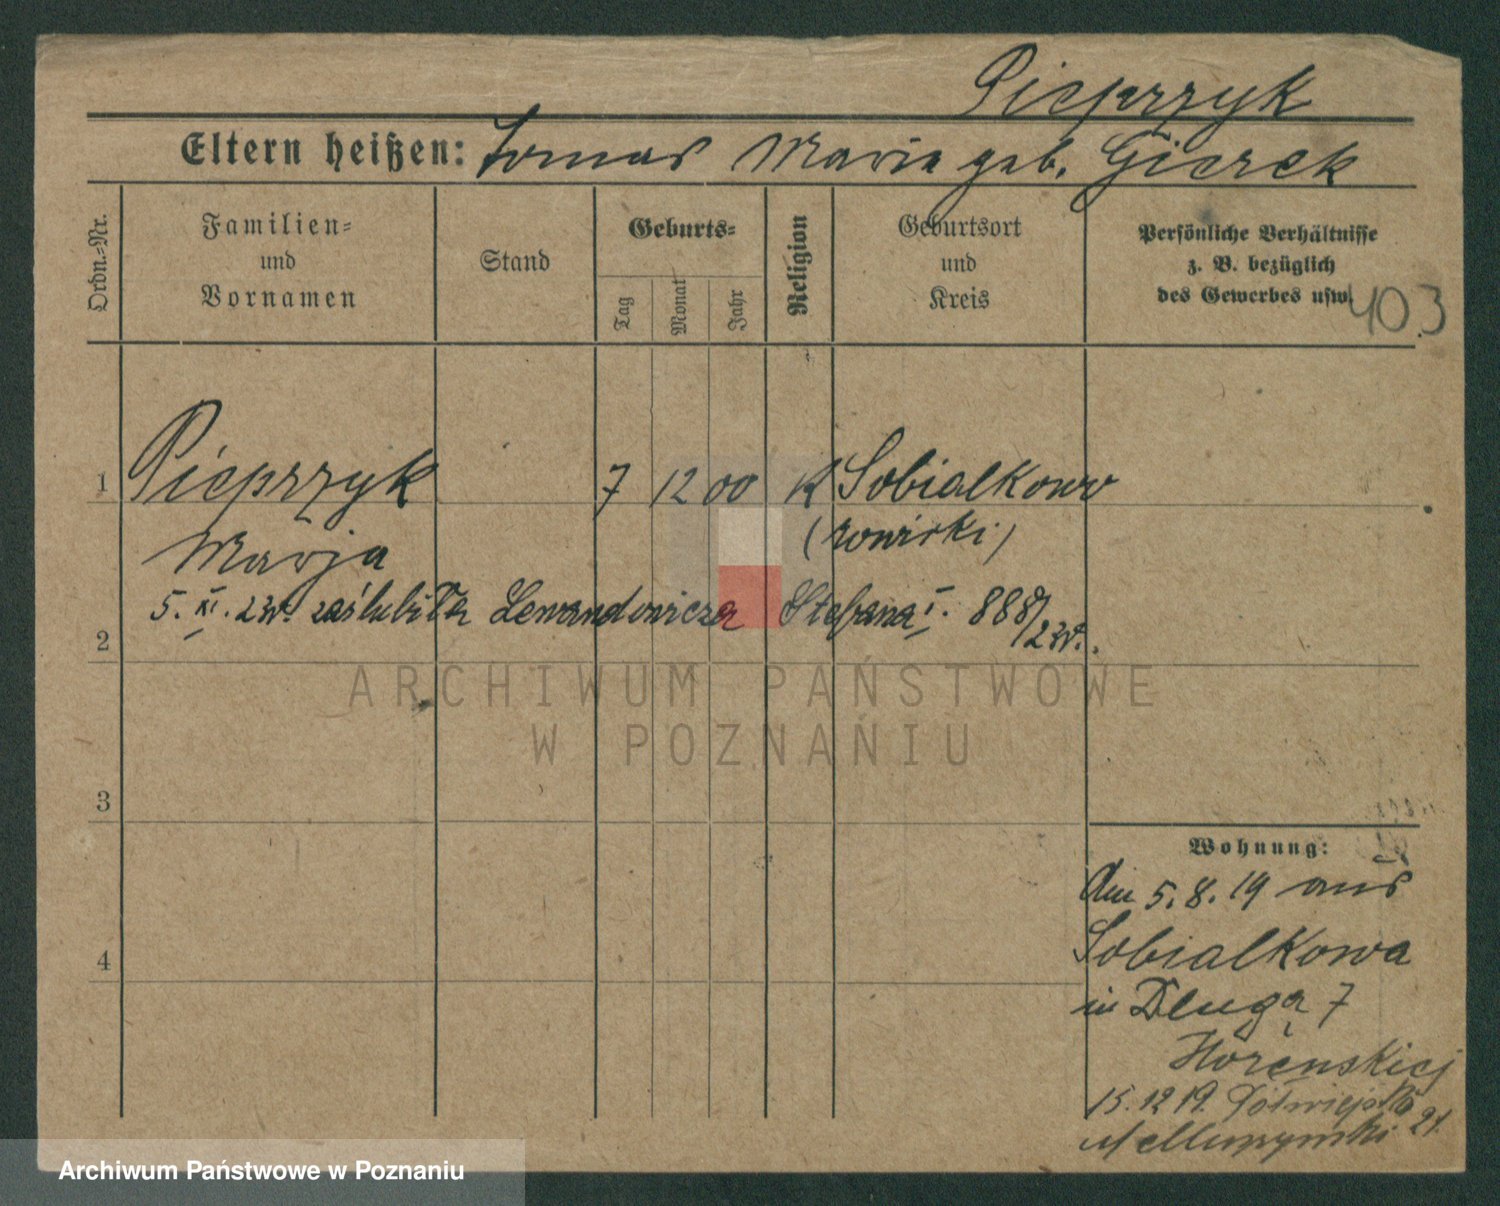 Pieprzyk
Eltern heißen: Tomas Maria geb. Gierek
Ordn.-Nr.
Familien-
und
Vornamen
Stand
Geburts-
Tag
Monat
Jahr
Religion
Geburtsort
und
Kreis
Persönliche Verhältnisse
z. B. bezüglich
des Gewerbes usw.
403
1 Pieprzyk 7 12 00 K Sobialkowo
Marja
5. XI. 23r. zaślubiła Lewandowicza Stefana I. 888/23r.
2
ARCHIWUM PAŃSTWOWE
W POZNANIU
3
4
Wohnung:
Am 5.8.19 aus
Sobialkowa
in Długa 7
15.12.19. Półwiejska 21.
Archiwum Państwowe w Poznaniu